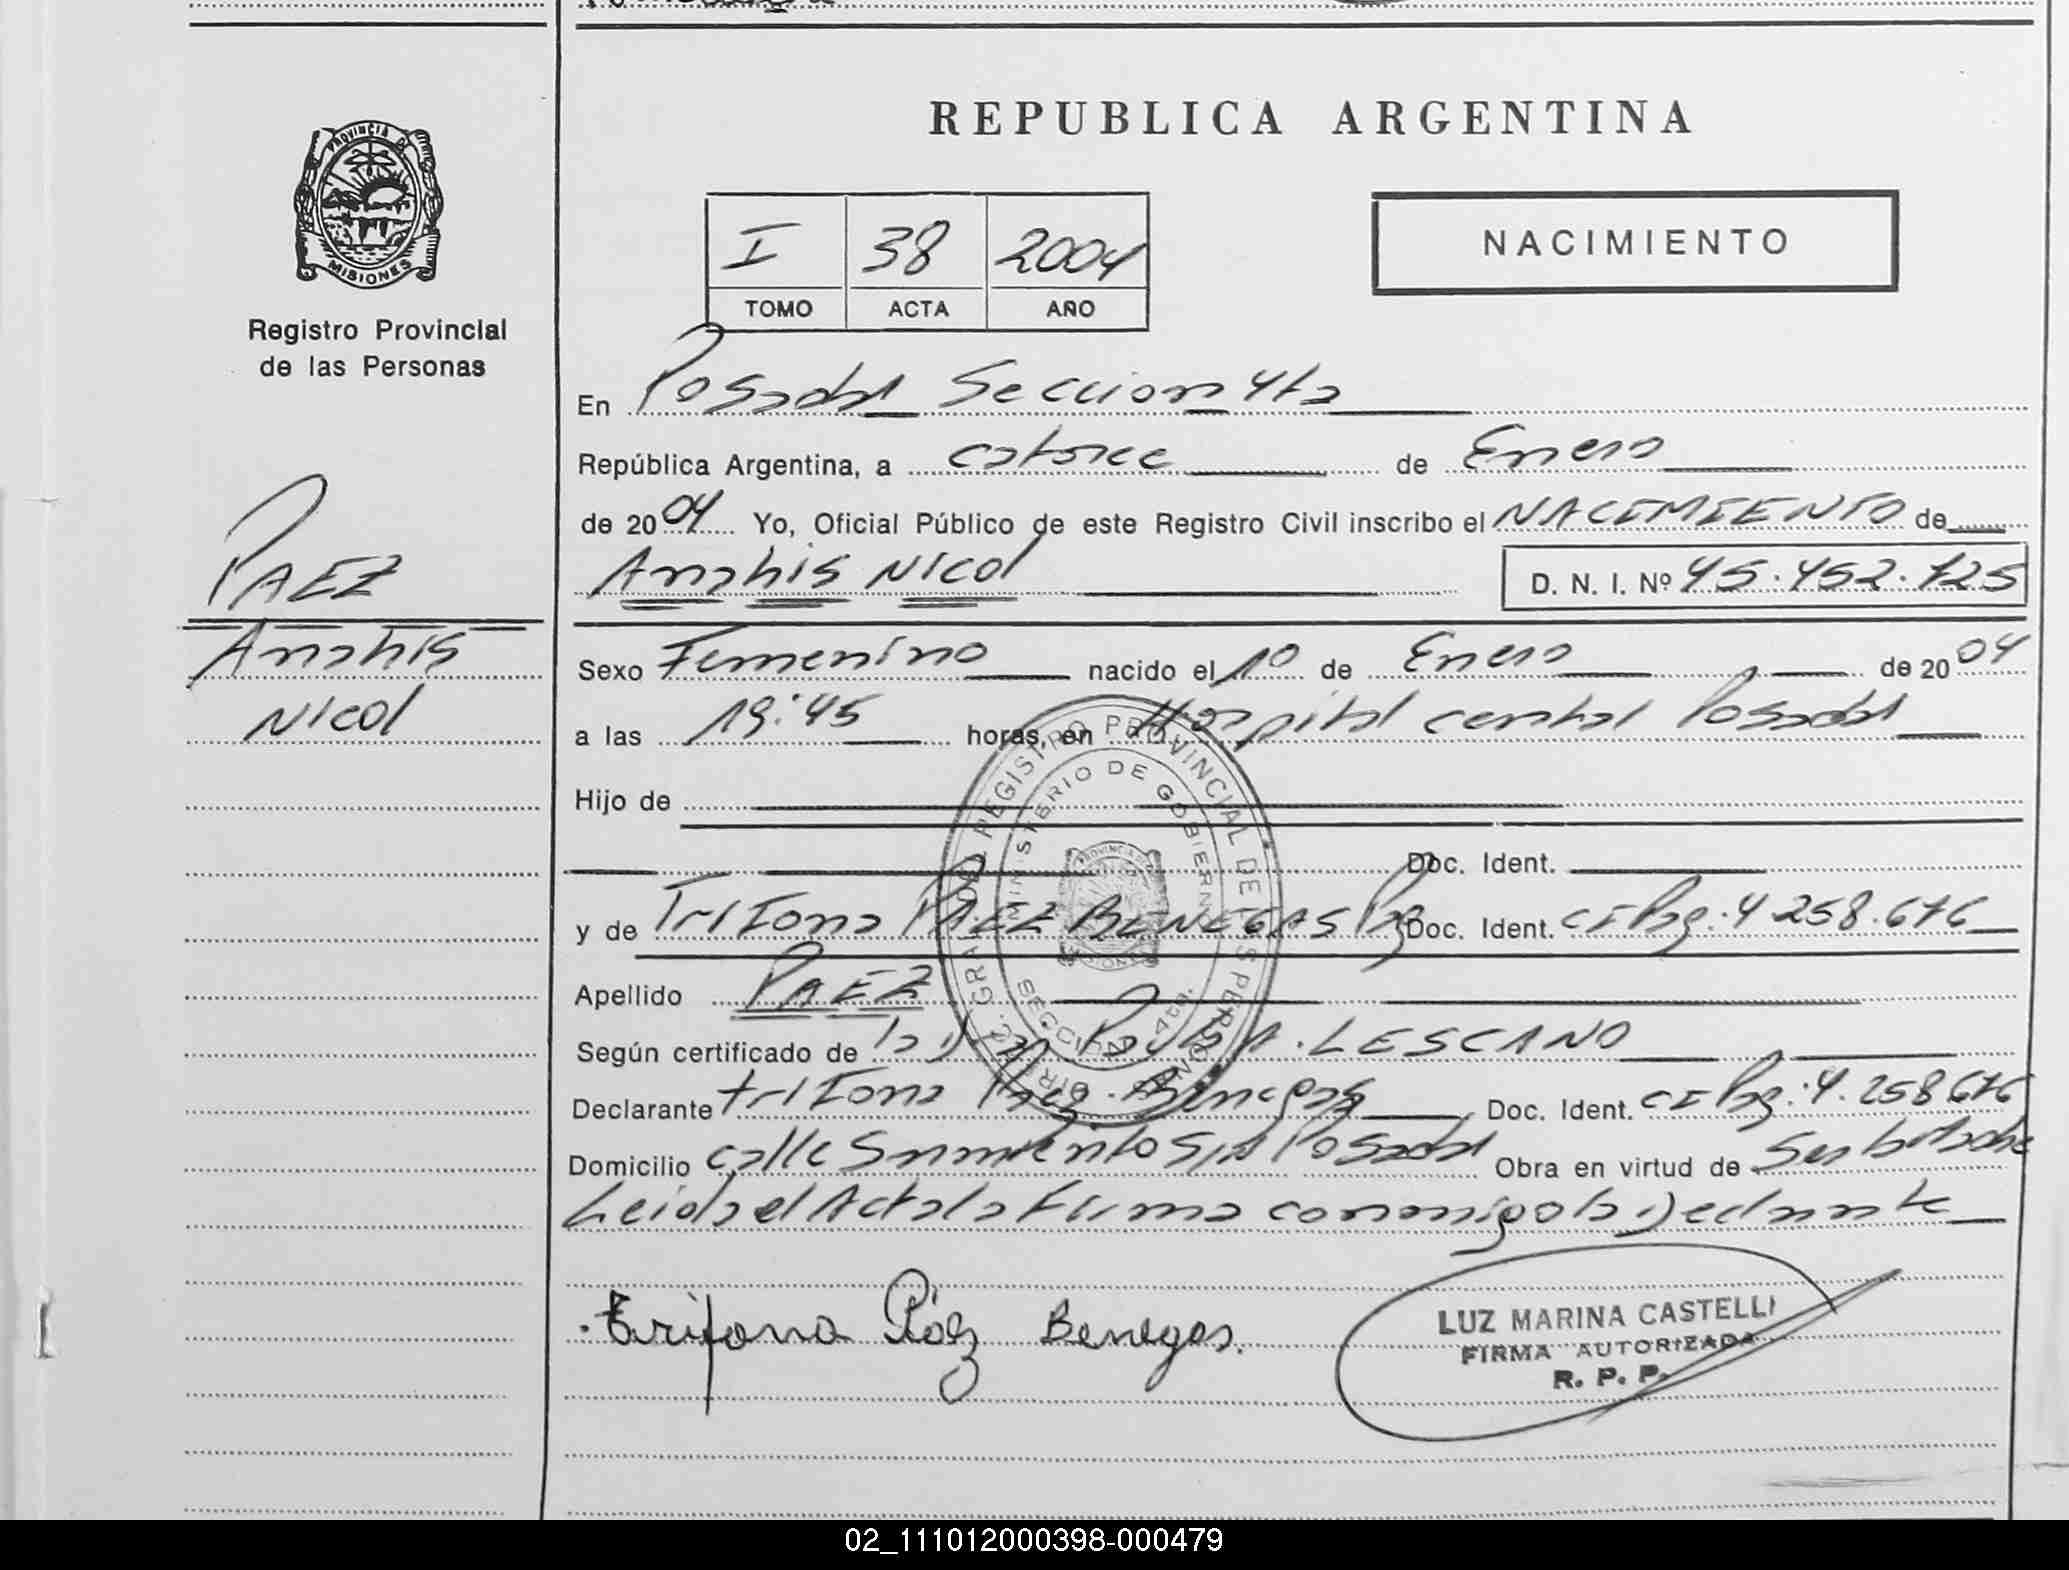 REPUBLICA ARGENTINA
PROVINCIA DE
MISIONES
Registro Provincial
de las Personas
I 38 2004
TOMO ACTA AÑO
NACIMIENTO
En Posadas Seccion 4ta
República Argentina, a catorce de Enero
de 2004 Yo, Oficial Público de este Registro Civil inscribo el NACIMIENTO de
Anahis Nicol D. N. I. Nº 45.452.725
PAEZ
Anahis
Nicol
Sexo Femenino nacido el 1º de Enero de 2004
a las 19:45 horas, en Hospital central Posadas
Hijo de
Doc. Ident.
y de Trifona PAEZ BENEGAS Doc. Ident. CI Pag: 4 258.676
Apellido PAEZ
Según certificado de la A. LESCANO
Declarante trifona Paez Benegas Doc. Ident. CI Pag: 4.258676
Domicilio calle Sarmiento S/N Posadas Obra en virtud de
Leida el Acta la Firma conmigo la Declarante
Trifona Páez Benegas.
LUZ MARINA CASTELLI
FIRMA AUTORIZADA
R. P. P.
REGISTRO PROVINCIAL DE LAS PERSONAS
MINISTERIO DE GOBIERNO
SECCION 4ta.
02_111012000398-000479